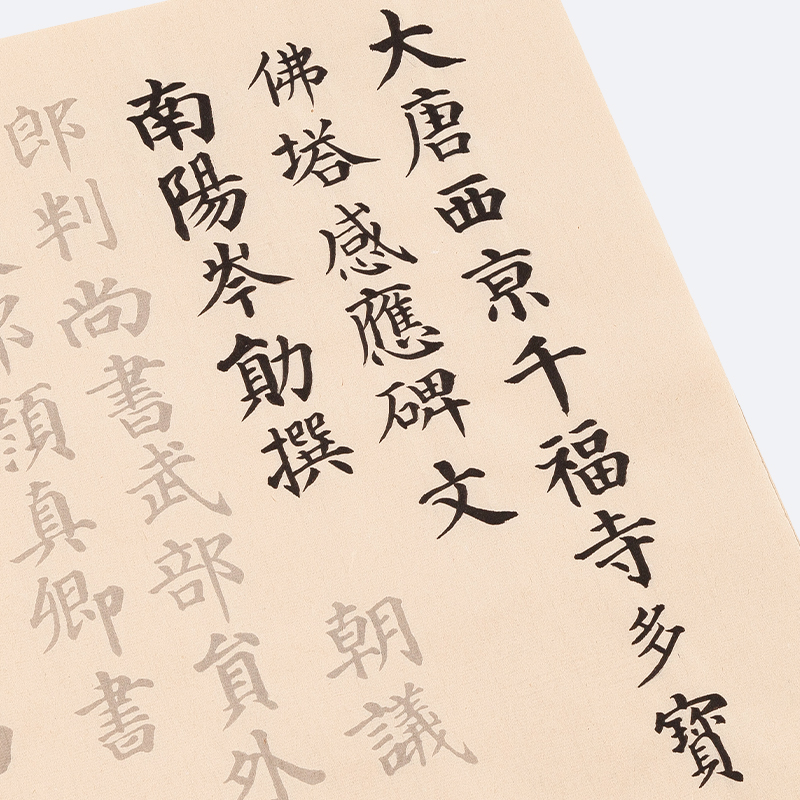 大唐西京千福寺多寶
佛塔感應碑文
南陽岑勛撰 朝議
郎判尚書武部員外
顏真卿書